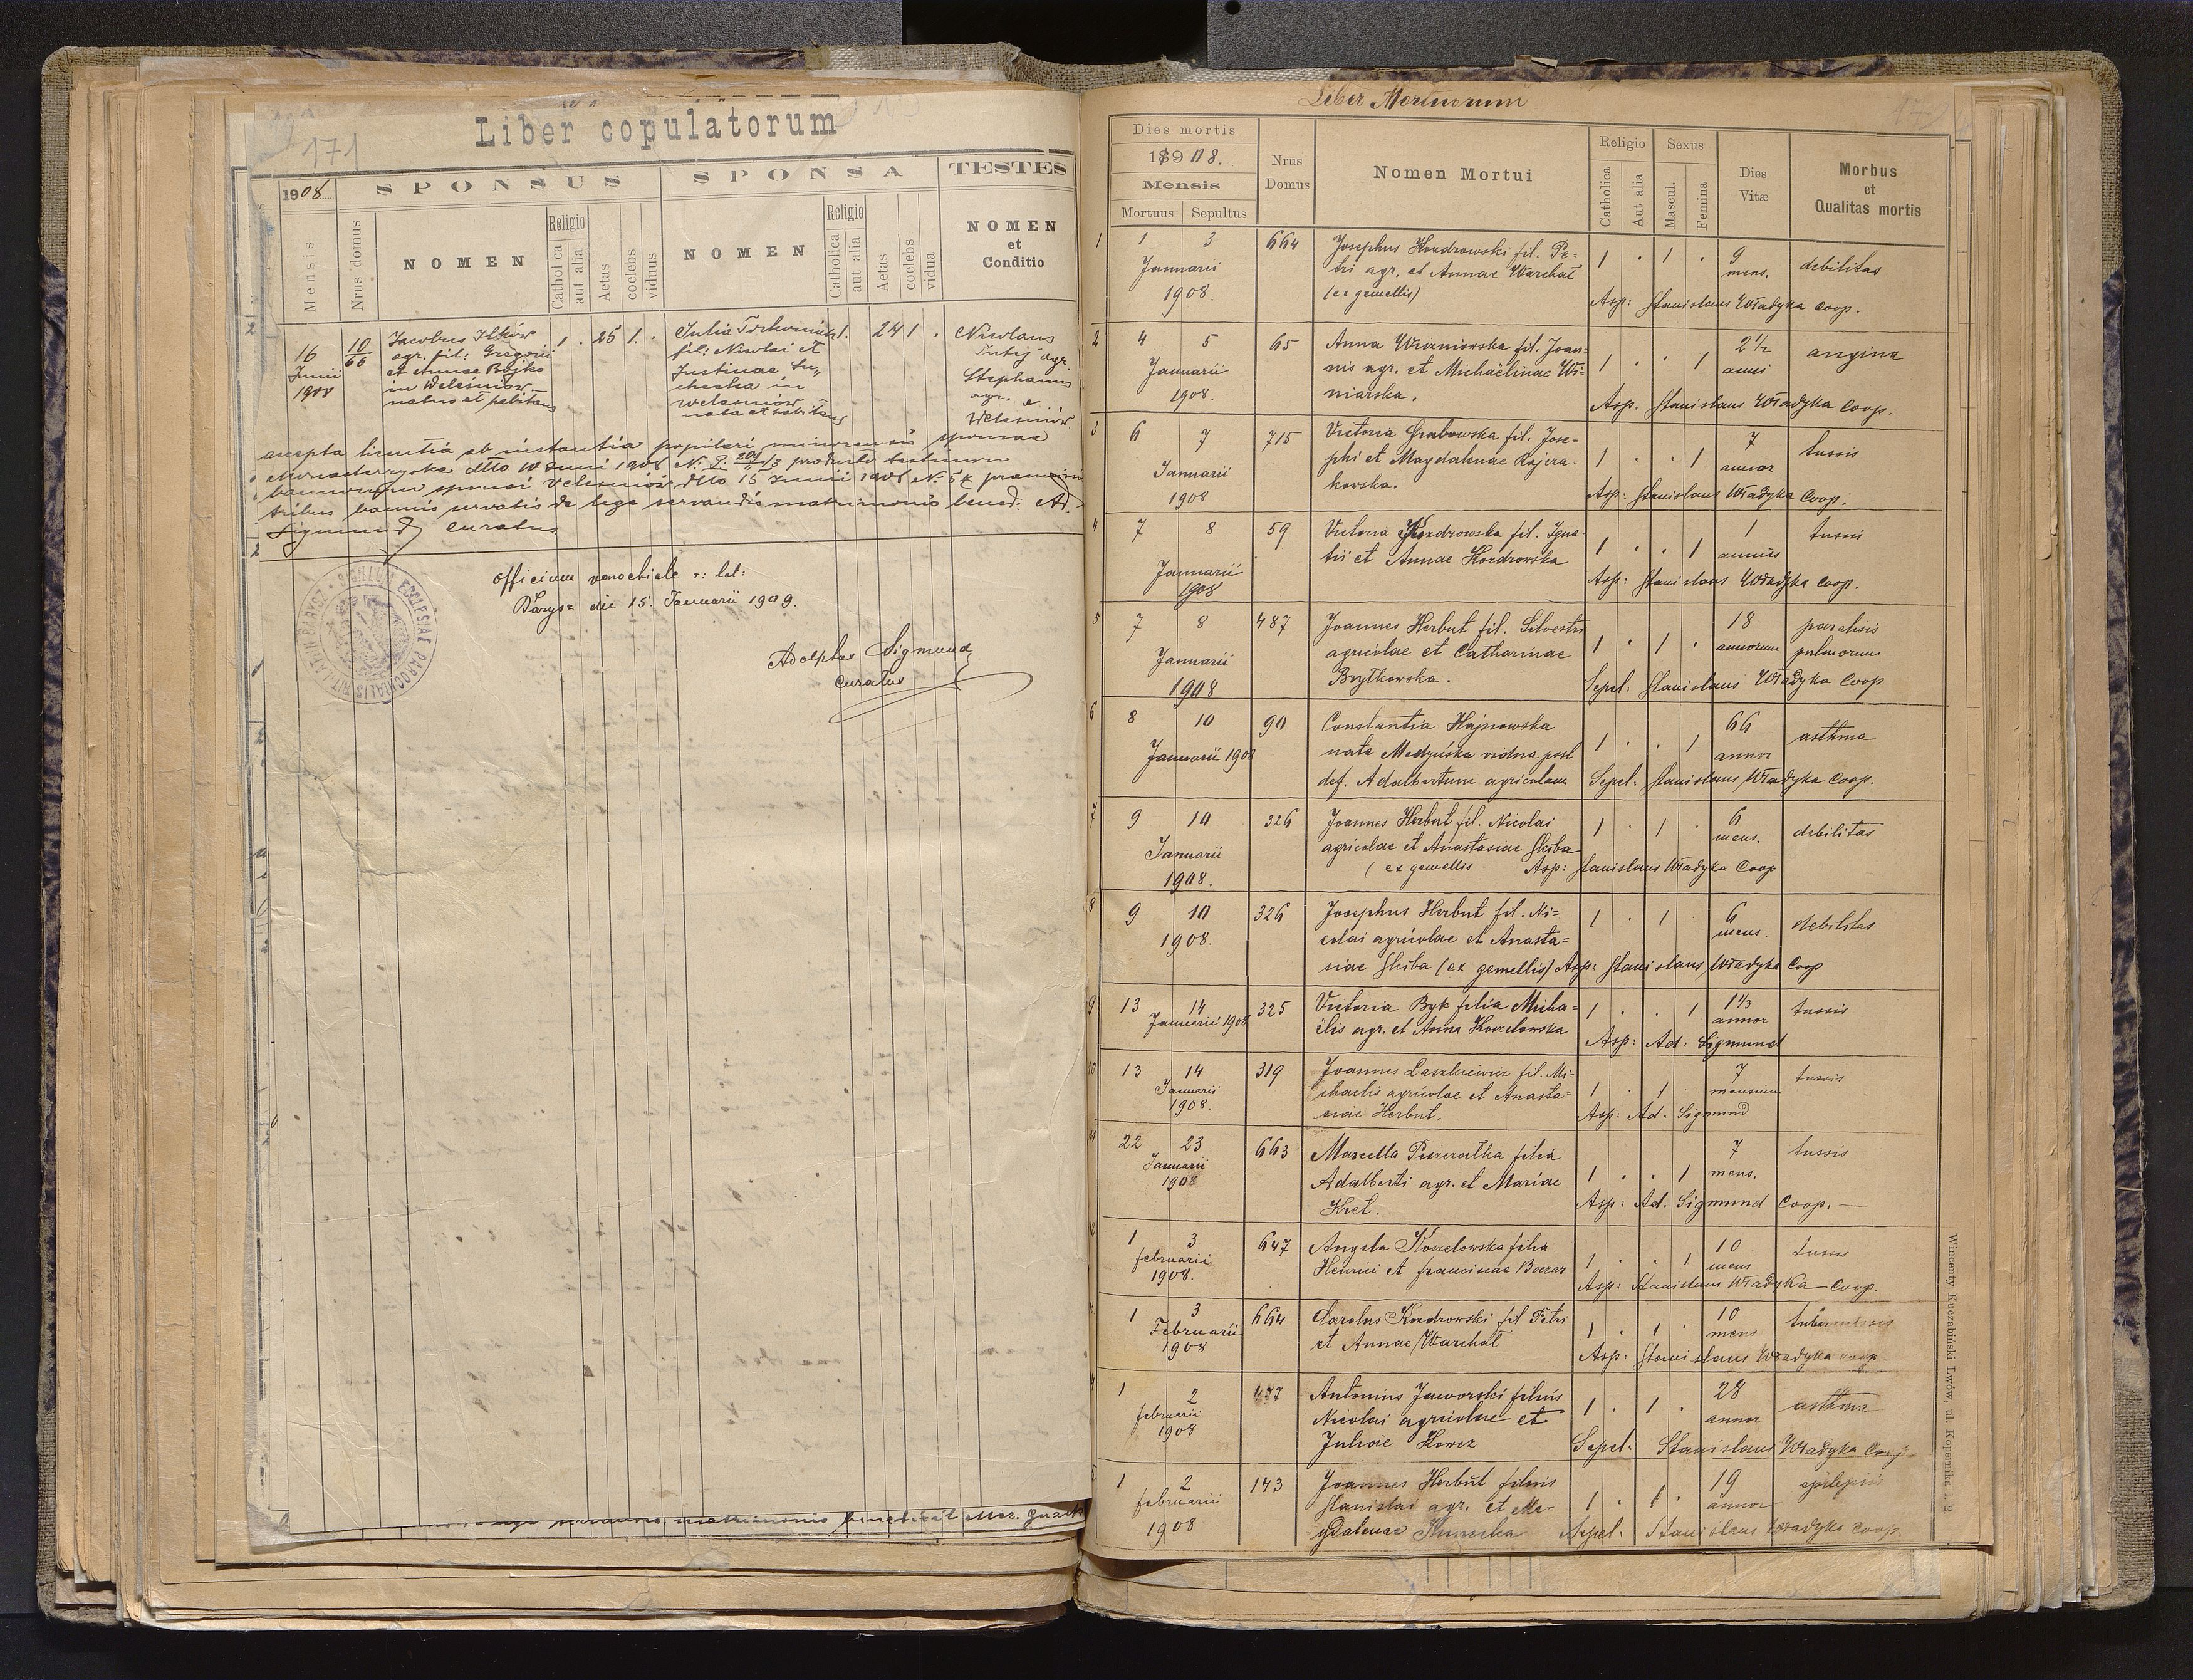 Liber copulatorum
171
1908
SPONSUS
SPONSA
TESTES
Mensis
Nrus domus
NOMEN
Religio
Catholica
aut alia
Aetas
coelebs
viduus
NOMEN
Religio
Catholica
aut alia
Aetas
coelebs
vidua
NOMEN
et
Conditio
16
Junii
1908
10
66
Jacobus Ilków
agr. fil: Gregorii
et Annae Bojko
in Weleśniów
natus et habitans
1 . 25 1 .
Julia
fil: Nicolai et
Justinae
in
Weleśniów
nata et habitans
1 . 24 1 .
Nicolaus
agr.
Stephanus
agr. e
Weleśniów.
accepta licentia ab instantia pupilari minorennis sponsae
dtto 10 Junii 1908 N:
bannorum sponsi Veleśniów dtto 15 Junii 1908 N: praemissis
tribus bannis servatis de lege servandis matrimonio bened. Ad.
Sigmund curatus
2
Officium parochiale r: lat:
Barysz die 15. Januarii 1909.
Adolphus Sigmund
curatus
SIGILLUM ECCLESIAE PAROCHIALIS RIT. LATINI BARYSZ
Liber Mortuorum
Dies mortis
1908.
Mensis
Mortuus
Sepultus
Nrus
Domus
Nomen Mortui
Religio
Catholica
Aut alia
Sexus
Mascul.
Femina
Dies
Vitæ
Morbus
et
Qualitas mortis
1 1 3 664 Josephus Kozdrowski fil. Pe= 1 . 1 . 9 debilitas
Januarii tri agr. et Annae Warchał mens.
1908. (ex gemellis) Asp: Stanislaus Władyka Coop.
2 4 5 65 Anna Wiśniowska fil. Joan= 1 . . 1 2 1/2 angina
Januarii nis agr. et Michaëlinae Wi= anni
1908. niarska. Asp. Stanislaus Władyka Coop.
3 6 7 715 Victoria Grabowska fil. Jose= 1 . . 1 7 tussis
Januarii phi et Magdalenae Rajcza= annor
1908 kowska. Asp: Stanislaus Władyka Coop.
4 7 8 59 Victoria Kozdrowska fil. Igna= 1 . . 1 1 tussis
Januarii tii et Annae Kozdrowska annus
1908 Asp: Stanislaus Władyka Coop.
5 7 8 487 Joannes Herbut fil. Silvestri 1 . 1 . 18 paralisis
Januarii agricolae et Catharinae annorum pulmorum
1908 Brytkowska. Sepel: Stanislaus Władyka Coop
6 8 10 90 Constantia Hajnowska 1 . . 1 66 asthma
Januarii 1908 nata Medyńska vidua post annor
def. Adalbertum agricolam Sepel: Stanislaus Władyka Coop.
7 9 10 326 Joannes Herbut fil. Nicolai 1 . 1 . 6 debilitas
Januarii agricolae et Anastasiae Skiba mens.
1908. (ex gemellis Asp: Stanislaus Władyka Coop
8 9 10 326 Josephus Herbut fil. Ni= 1 . 1 . 6 debilitas
1908. colai agricolae et Anasta= mens.
siae Skiba (ex gemellis) Asp: Stanislaus Władyka Coop
9 13 14 325 Victoria Byk filia Micha= 1 . . 1 1 1/3 tussis
Januarii 1908 ëlis agr. et Anna Kozelowska annor
Asp: Ad: Sigmund
10 13 14 319 Joannes Laszkiewicz fil. Mi= 1 . 1 . 7 tussis
Januarii chaelis agricolae et Anasta= mensium
1908. siae Herbut. Asp: Ad. Sigmund
11 22 23 663 Marcella filia 1 . . 1 7 tussis
Januarii Adalberti agr. et Mariae mens.
1908 Kret. Asp: Ad. Sigmund Coop. —
12 1 3 647 Angela Kozelowska filia 1 . . 1 10 tussis
februarii Henrici et franciscae Boczar mens
1908. Asp: Stanislaus Władyka Coop.
1 3 664 Carolus Kozdrowski fil Petri 1 . 1 . 10 tuberculosis
Februarii et Annae Warchał mens
1908 Asp: Stanislaus Władyka coop
1 2 477 Antonius Jaworski filius 1 . 1 . 28 asthma
februarii Nicolai agricolae et annor
1908 Juliae Sepel: Stanislaus Władyka Coop
1 2 143 Joannes Herbut filius 1 . 1 . 19 epilepsis
februarii Stanislai agr. et Ma= annor
1908 gdalenae Sepel: Stanislaus Władyka Coop.
Wincenty Kuczabiński Lwów, ul. Kopernika l. 2
matrimonio benedixit